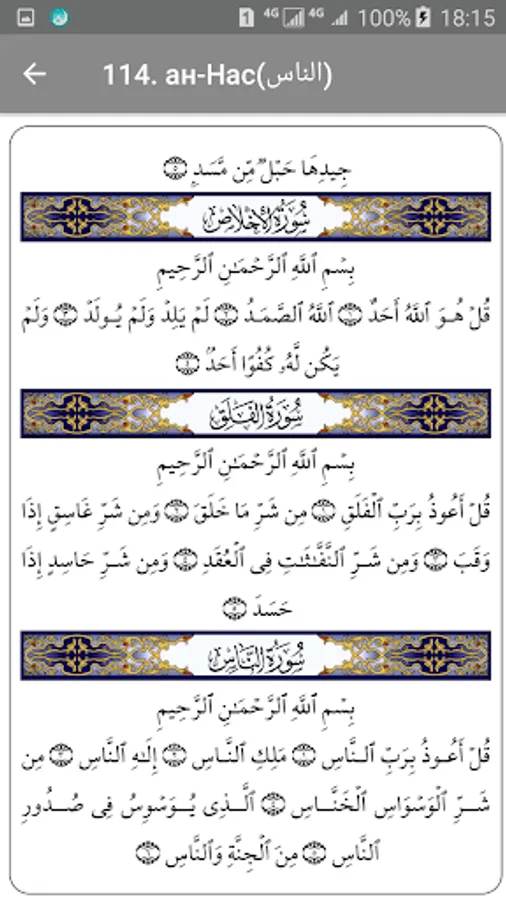 1 4G 4G 100% 18:15
114. ан-Нас(الناس)
جِيدِهَا حَبْلٌ مِّن مَّسَدٍۭ ۝٥
سُورَةُ الإِخْلَاصِ
بِسْمِ ٱللَّهِ ٱلرَّحْمَـٰنِ ٱلرَّحِيمِ
قُلْ هُـوَ ٱللَّهُ أَحَدٌ ۝١ ٱللَّهُ ٱلصَّمَـدُ ۝٢ لَمْ يَلِدْ وَلَمْ يُـولَدْ ۝٣ وَلَمْ
يَكُن لَّهُۥ كُفُوًا أَحَدٌۢ ۝٤
سُورَةُ الفَلَقِ
بِسْمِ ٱللَّهِ ٱلرَّحْمَـٰنِ ٱلرَّحِيمِ
قُلْ أَعُوذُ بِرَبِّ ٱلْفَلَقِ ۝١ مِن شَرِّ مَا خَلَقَ ۝٢ وَمِن شَرِّ غَاسِقٍ إِذَا
وَقَبَ ۝٣ وَمِن شَـرِّ ٱلنَّفَّـٰثَـٰتِ فِى ٱلْعُقَدِ ۝٤ وَمِن شَـرِّ حَاسِدٍ إِذَا
حَسَدَ ۝٥
سُورَةُ النَّاسِ
بِسْمِ ٱللَّهِ ٱلرَّحْمَـٰنِ ٱلرَّحِيمِ
قُلْ أَعُـوذُ بِرَبِّ ٱلـنَّاسِ ۝١ مَلِكِ ٱلنَّـاسِ ۝٢ إِلَـٰهِ ٱلنَّاسِ ۝٣ مِن
شَـرِّ ٱلْوَسْوَاسِ ٱلْخَنَّـاسِ ۝٤ ٱلَّـذِى يُـوَسْوِسُ فِى صُـدُورِ
ٱلنَّاسِ ۝٥ مِنَ ٱلْجِنَّةِ وَٱلنَّاسِ ۝٦